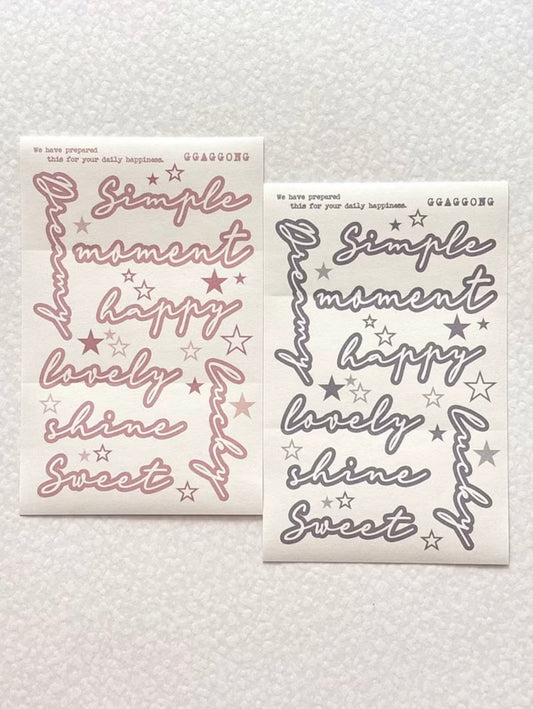 We have prepared
this for your daily happiness.
GGAGGONG
Dreamy
Simple
moment
happy
lovely
shine
Sweet
lucky
We have prepared
this for your daily happiness.
GGAGGONG
Dreamy
Simple
moment
happy
lovely
shine
Sweet
lucky